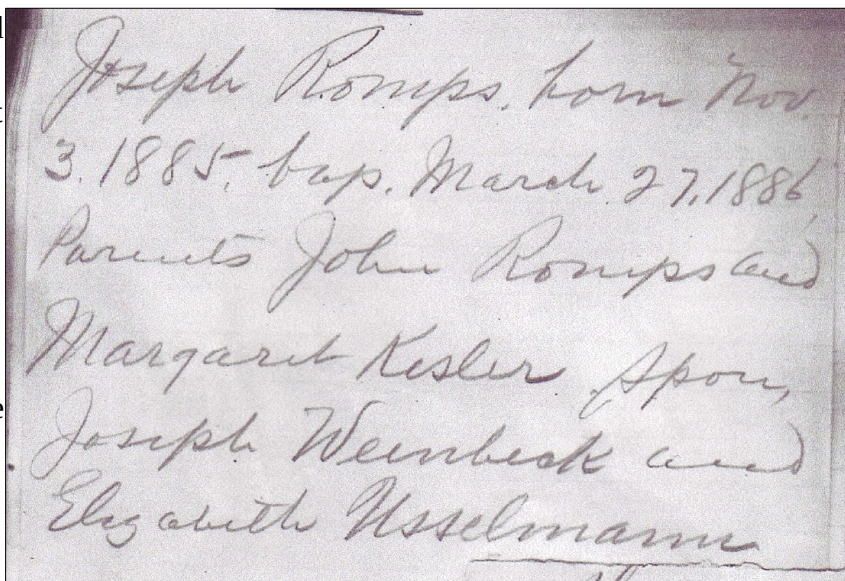 Joseph Romps. born Nov.
3. 1885. bap. March. 27. 1886,
Parents John Romps and
Margaret Kesler Spon,
Joseph Weinbeck and
Elizabeth Usselmann